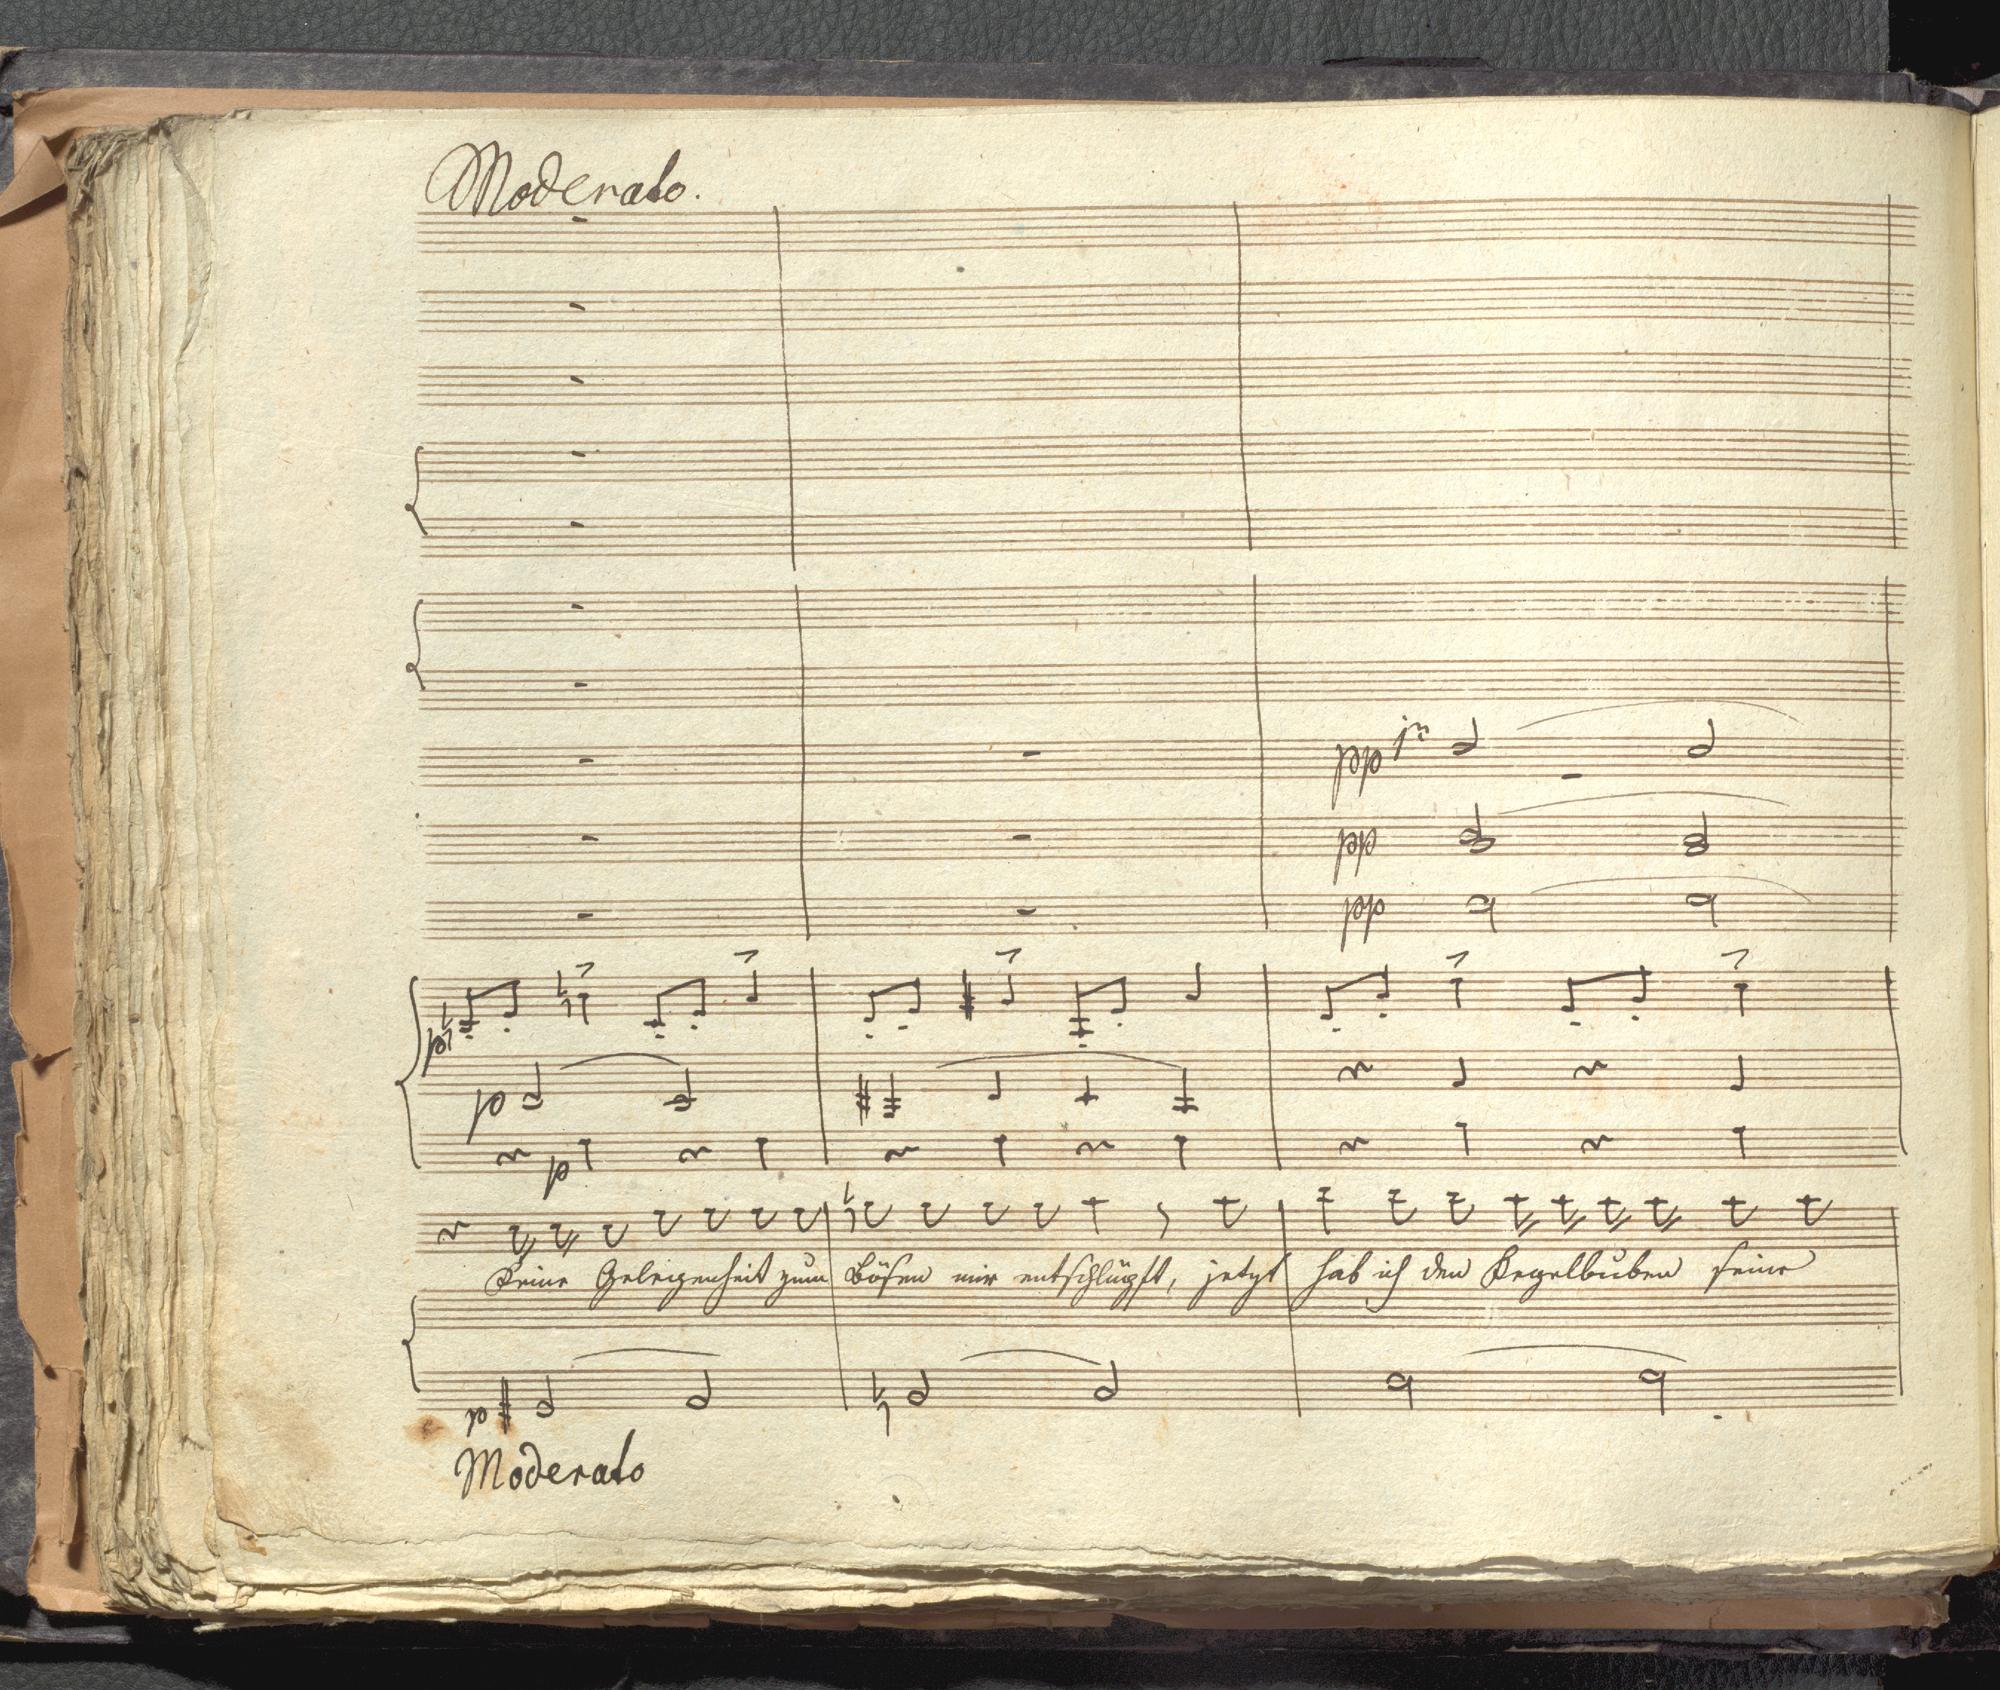 Moderato.
pp 1mo
pp
pp
p
p
p
Keine Gelegenheit zum Bösen mir entschlüpft, jetzt hab ich den Kegelbuben seine
p
Moderato